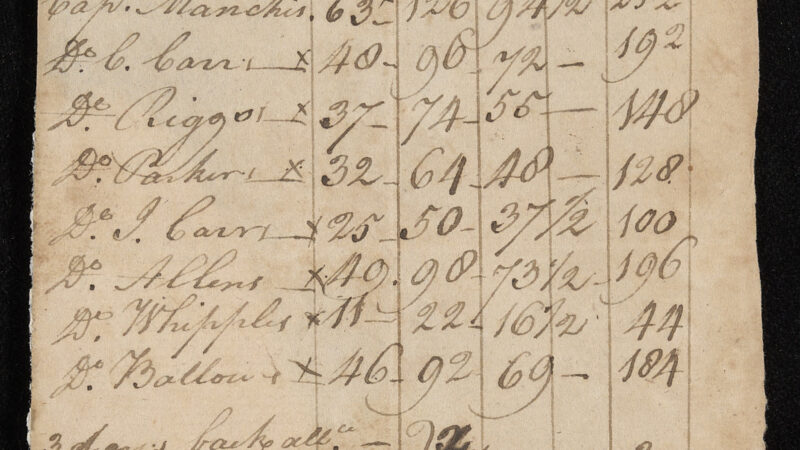 Cap. Manchis. 63 - 126 94 1/2 252
Do. C. Carrs x 48 - 96 - 72 - 192
Do. Riggs x 37 - 74 - 55 - 148
Do. Parkers x 32 - 64 - 48 - 128
Do. J. Carrs x 25 - 50 - 37 1/2 100
Do. Allens x 49. 98 - 73 1/2 - 196
Do. Whipples x 11 - 22 - 16 1/2 44
Do. Ballows x 46 - 92 - 69 - 184
3